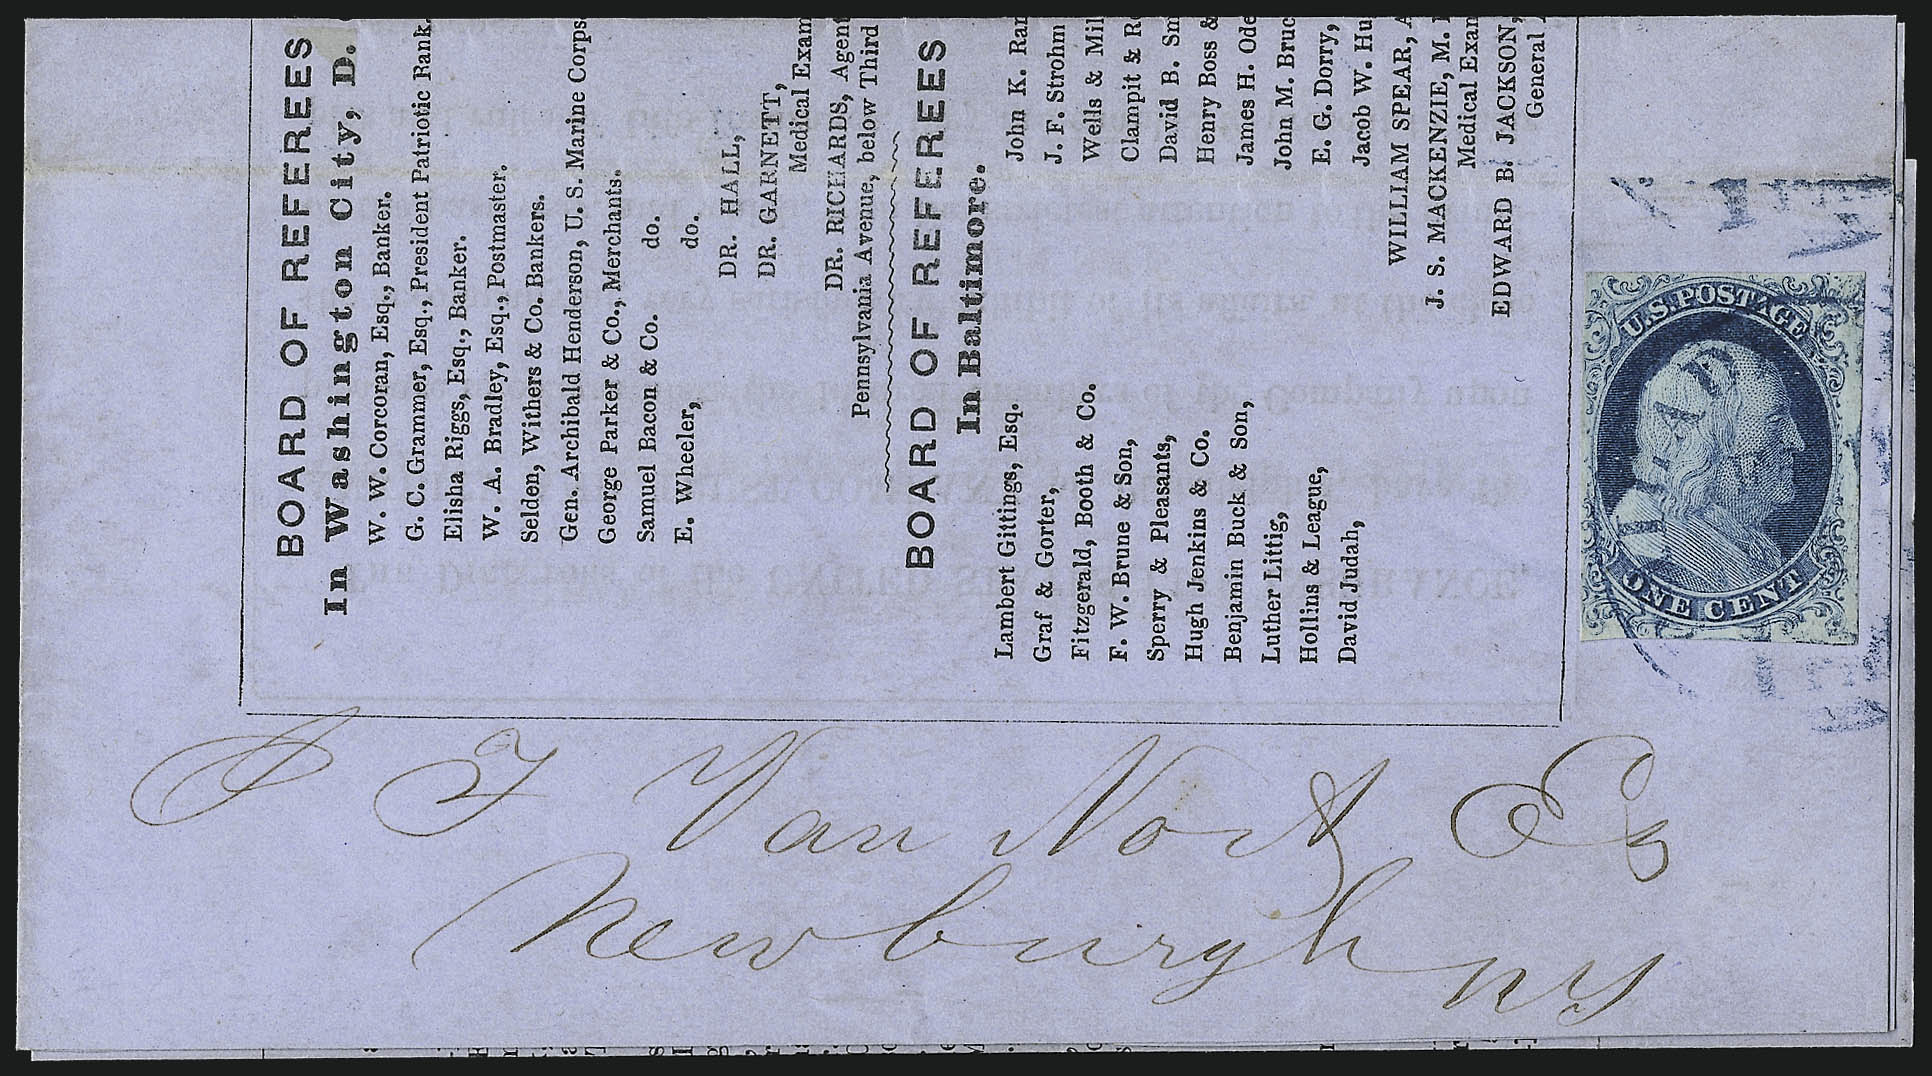 BOARD OF REFEREES
In Washington City, D.
W. W. Corcoran, Esq., Banker.
G. C. Grammer, Esq., President Patriotic Bank.
Elisha Riggs, Esq., Banker.
W. A. Bradley, Esq., Postmaster.
Selden, Withers & Co. Bankers.
Gen. Archibald Henderson, U. S. Marine Corps
George Parker & Co., Merchants.
Samuel Bacon & Co. do.
E. Wheeler, do.
DR. HALL,
DR. GARNETT,
Medical Exam
DR. RICHARDS, Agent
Pennsylvania Avenue, below Third
BOARD OF REFEREES
In Baltimore.
Lambert Gittings, Esq. John K. Ran
Graf & Gorter, J. F. Strohm
Fitzgerald, Booth & Co. Wells & Mil
F. W. Brune & Son, Clampit & R
Sperry & Pleasants, David B. Sm
Hugh Jenkins & Co. Henry Boss &
Benjamin Buck & Son, James H. Ode
Luther Littig, John M. Bruc
Hollins & League, E. G. Dorry,
David Judah, Jacob W. Hu
WILLIAM SPEAR, A
J. S. MACKENZIE, M.
Medical Exan
EDWARD B. JACKSON,
General
U.S. POSTAGE
ONE CENT
PAID
Van Nort Esq
Newburgh
NY